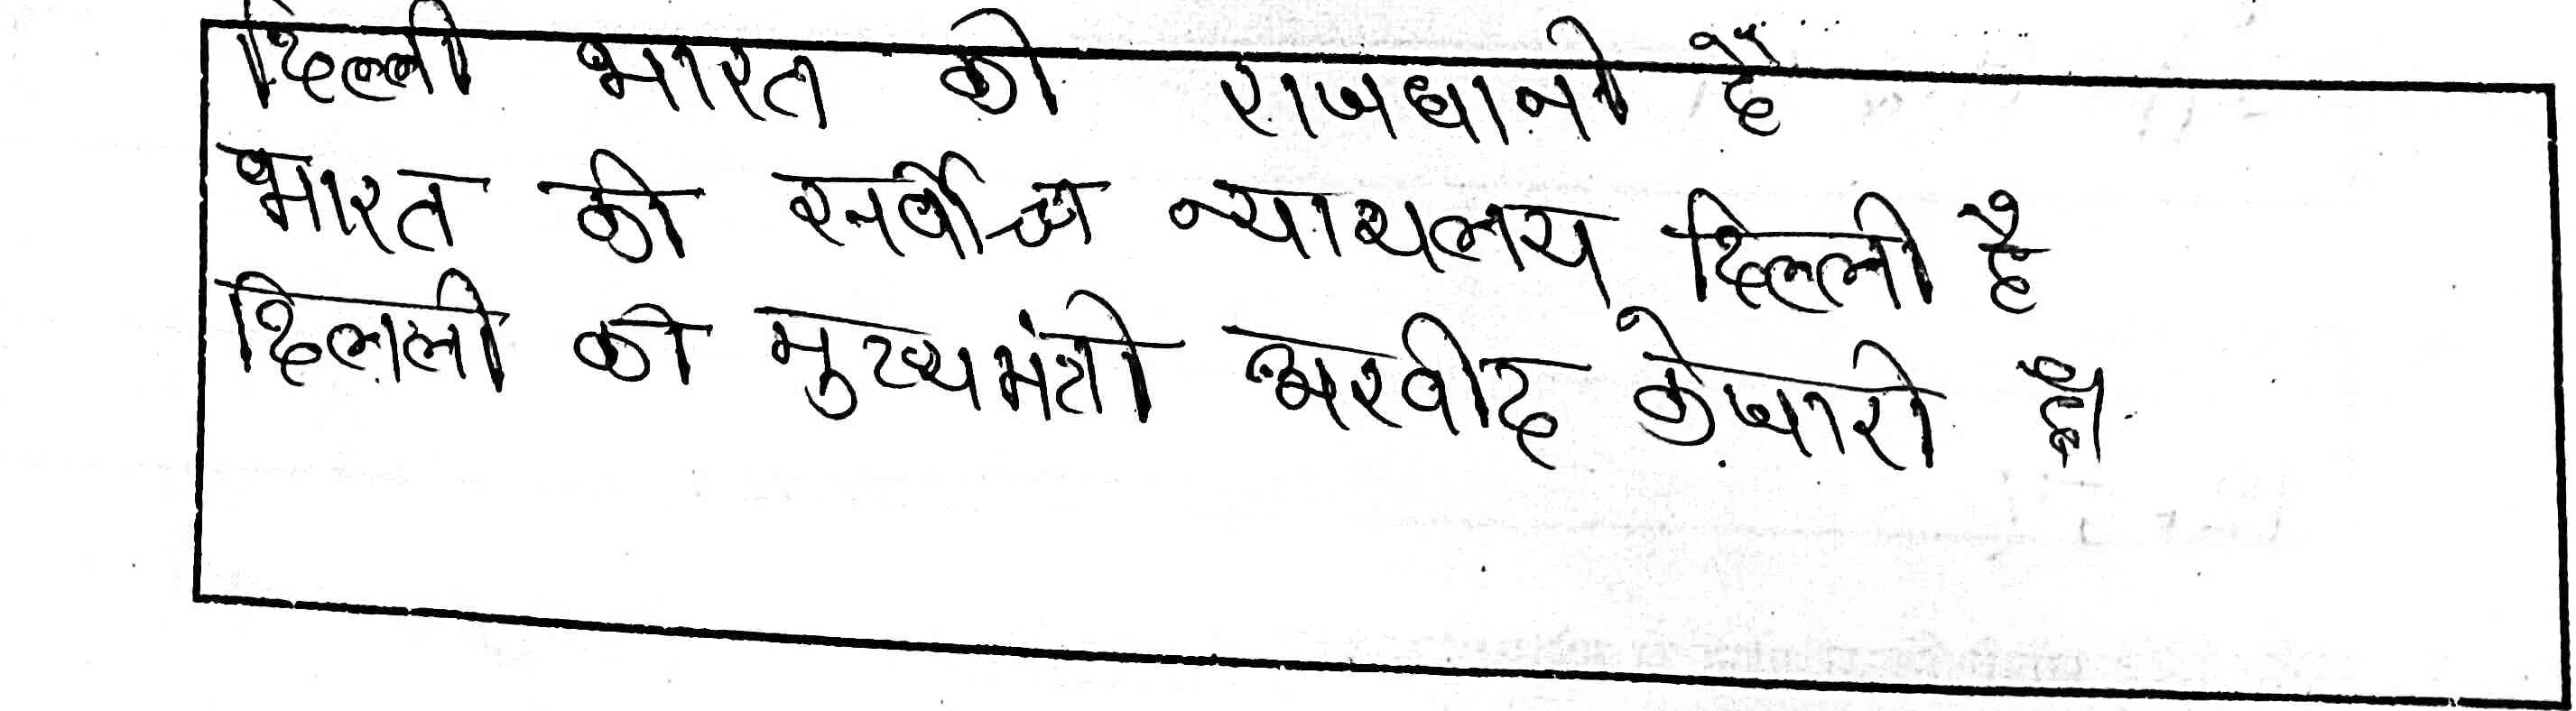 दिल्ली भारत की राजधानी है
भारत की सर्वोच्च न्यायलय दिल्ली है
दिलली की मुख्यमंत्री अरवीद केजारी है